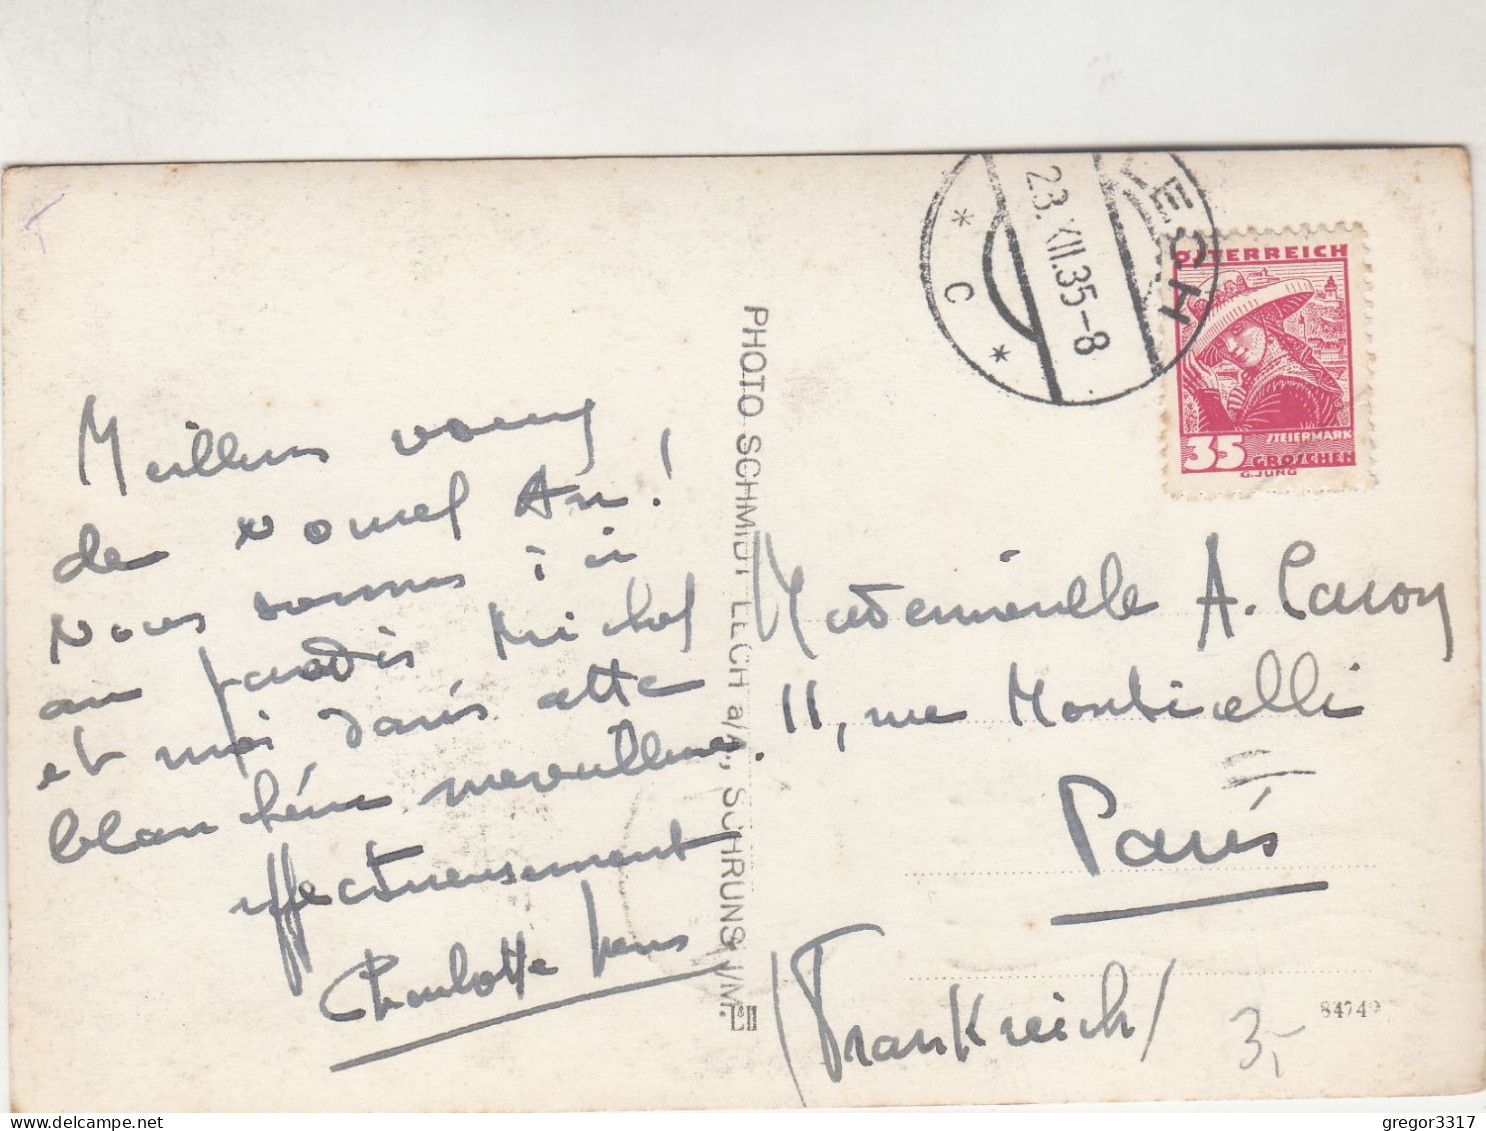 Meilleurs voeux
de Nouvel An!
Nous sommes ici
au paradis Michel
et moi dans cette
blancheur merveilleuse.
Affectueusement
Charlotte
PHOTO SCHMIDT LECH a/A., SCHRUNS i/M.
LECH
23.XII.35-8
* C *
ÖSTERREICH
STEIERMARK
35 GROSCHEN
G.JUNG
Mademoiselle A. Caron
11, rue Monticelli
Paris
(Frankreich)
84749
3,-
gregor3317